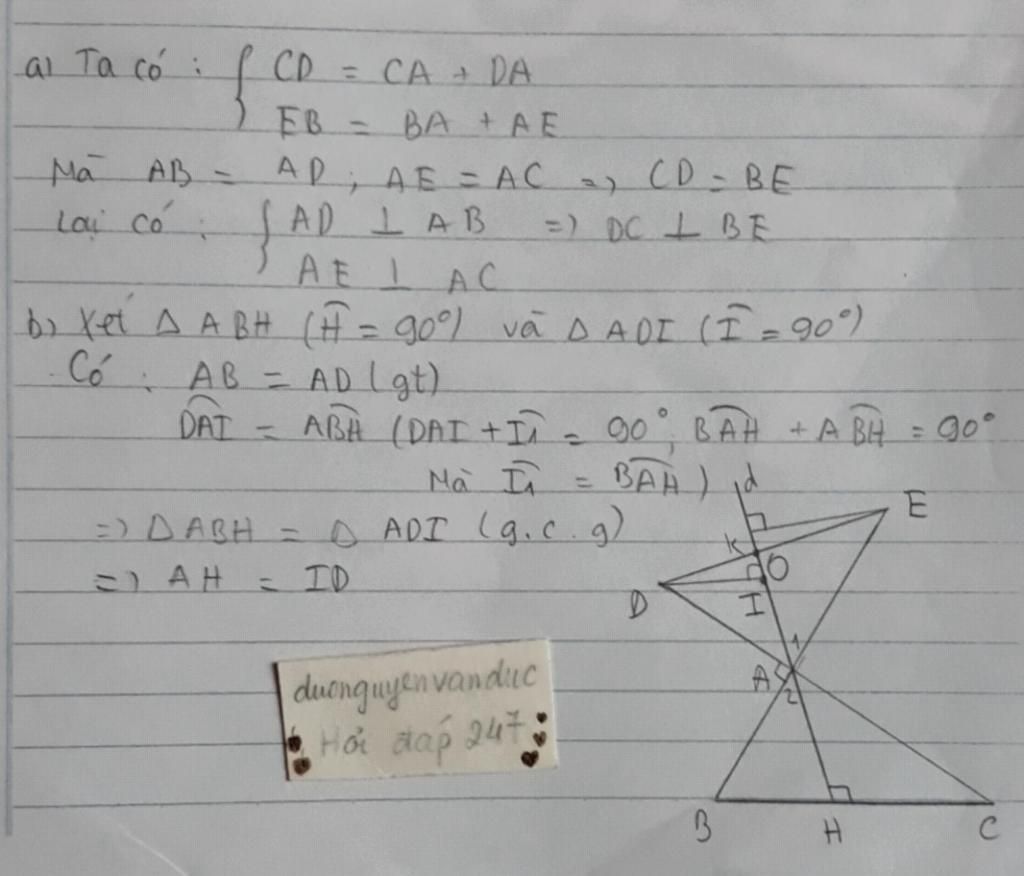 a) Ta có : { CD = CA + DA
EB = BA + AE
Mà AB = AD ; AE = AC => CD = BE
Lại có : { AD ⊥ AB => DC ⊥ BE
AE ⊥ AC
b) Xét Δ ABH (Ĥ = 90°) và Δ ADI (Î = 90°)
Có : AB = AD (gt)
DAI = ABH (DAI + I1 = 90°; BAH + ABH = 90°
Mà I1 = BAH)
=> Δ ABH = Δ ADI (g.c.g)
=> AH = ID
d
E
K
O
D
I
1
A
2
B
H
C
duonguyenvanduc
Hỏi đáp 247